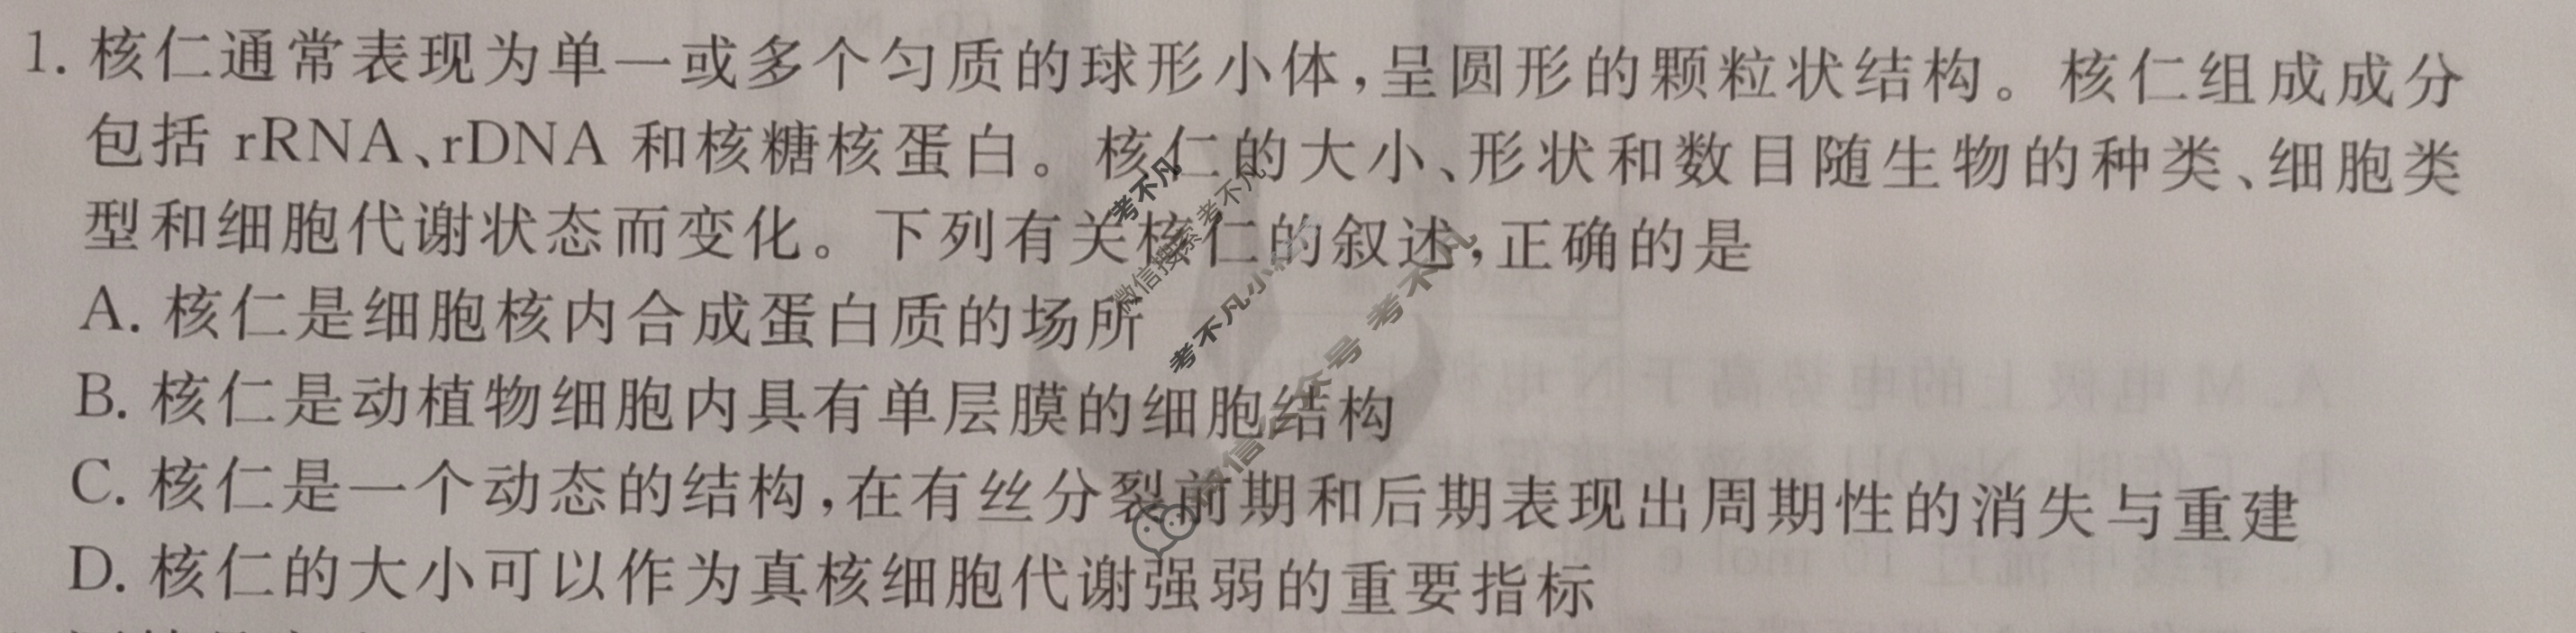 1. 核仁通常表现为单一或多个匀质的球形小体,呈圆形的颗粒状结构。核仁组成成分
包括 rRNA、rDNA 和核糖核蛋白。核仁的大小、形状和数目随生物的种类、细胞类
型和细胞代谢状态而变化。下列有关核仁的叙述,正确的是
A. 核仁是细胞核内合成蛋白质的场所
B. 核仁是动植物细胞内具有单层膜的细胞结构
C. 核仁是一个动态的结构,在有丝分裂前期和后期表现出周期性的消失与重建
D. 核仁的大小可以作为真核细胞代谢强弱的重要指标
考不凡
微信搜索 考不凡
考不凡小
微信公众号 考不凡